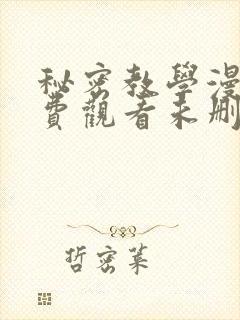 秘密教學漫
費觀看未刪
哲密萊